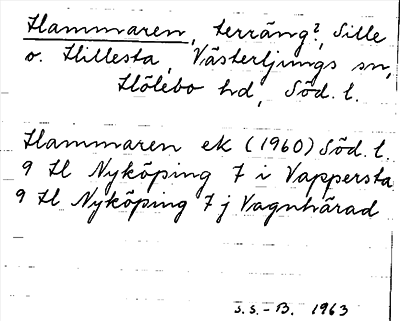 Hammaren, terräng?, Sille
o. Hillesta, Västerljungs sn,
Hölebo hd, Söd. l.
Hammaren ek (1960) Söd. l.
9 H Nyköping 7 i Vappersta
9 H Nyköping 7 j Vagnhärad
S.S.-B. 1963